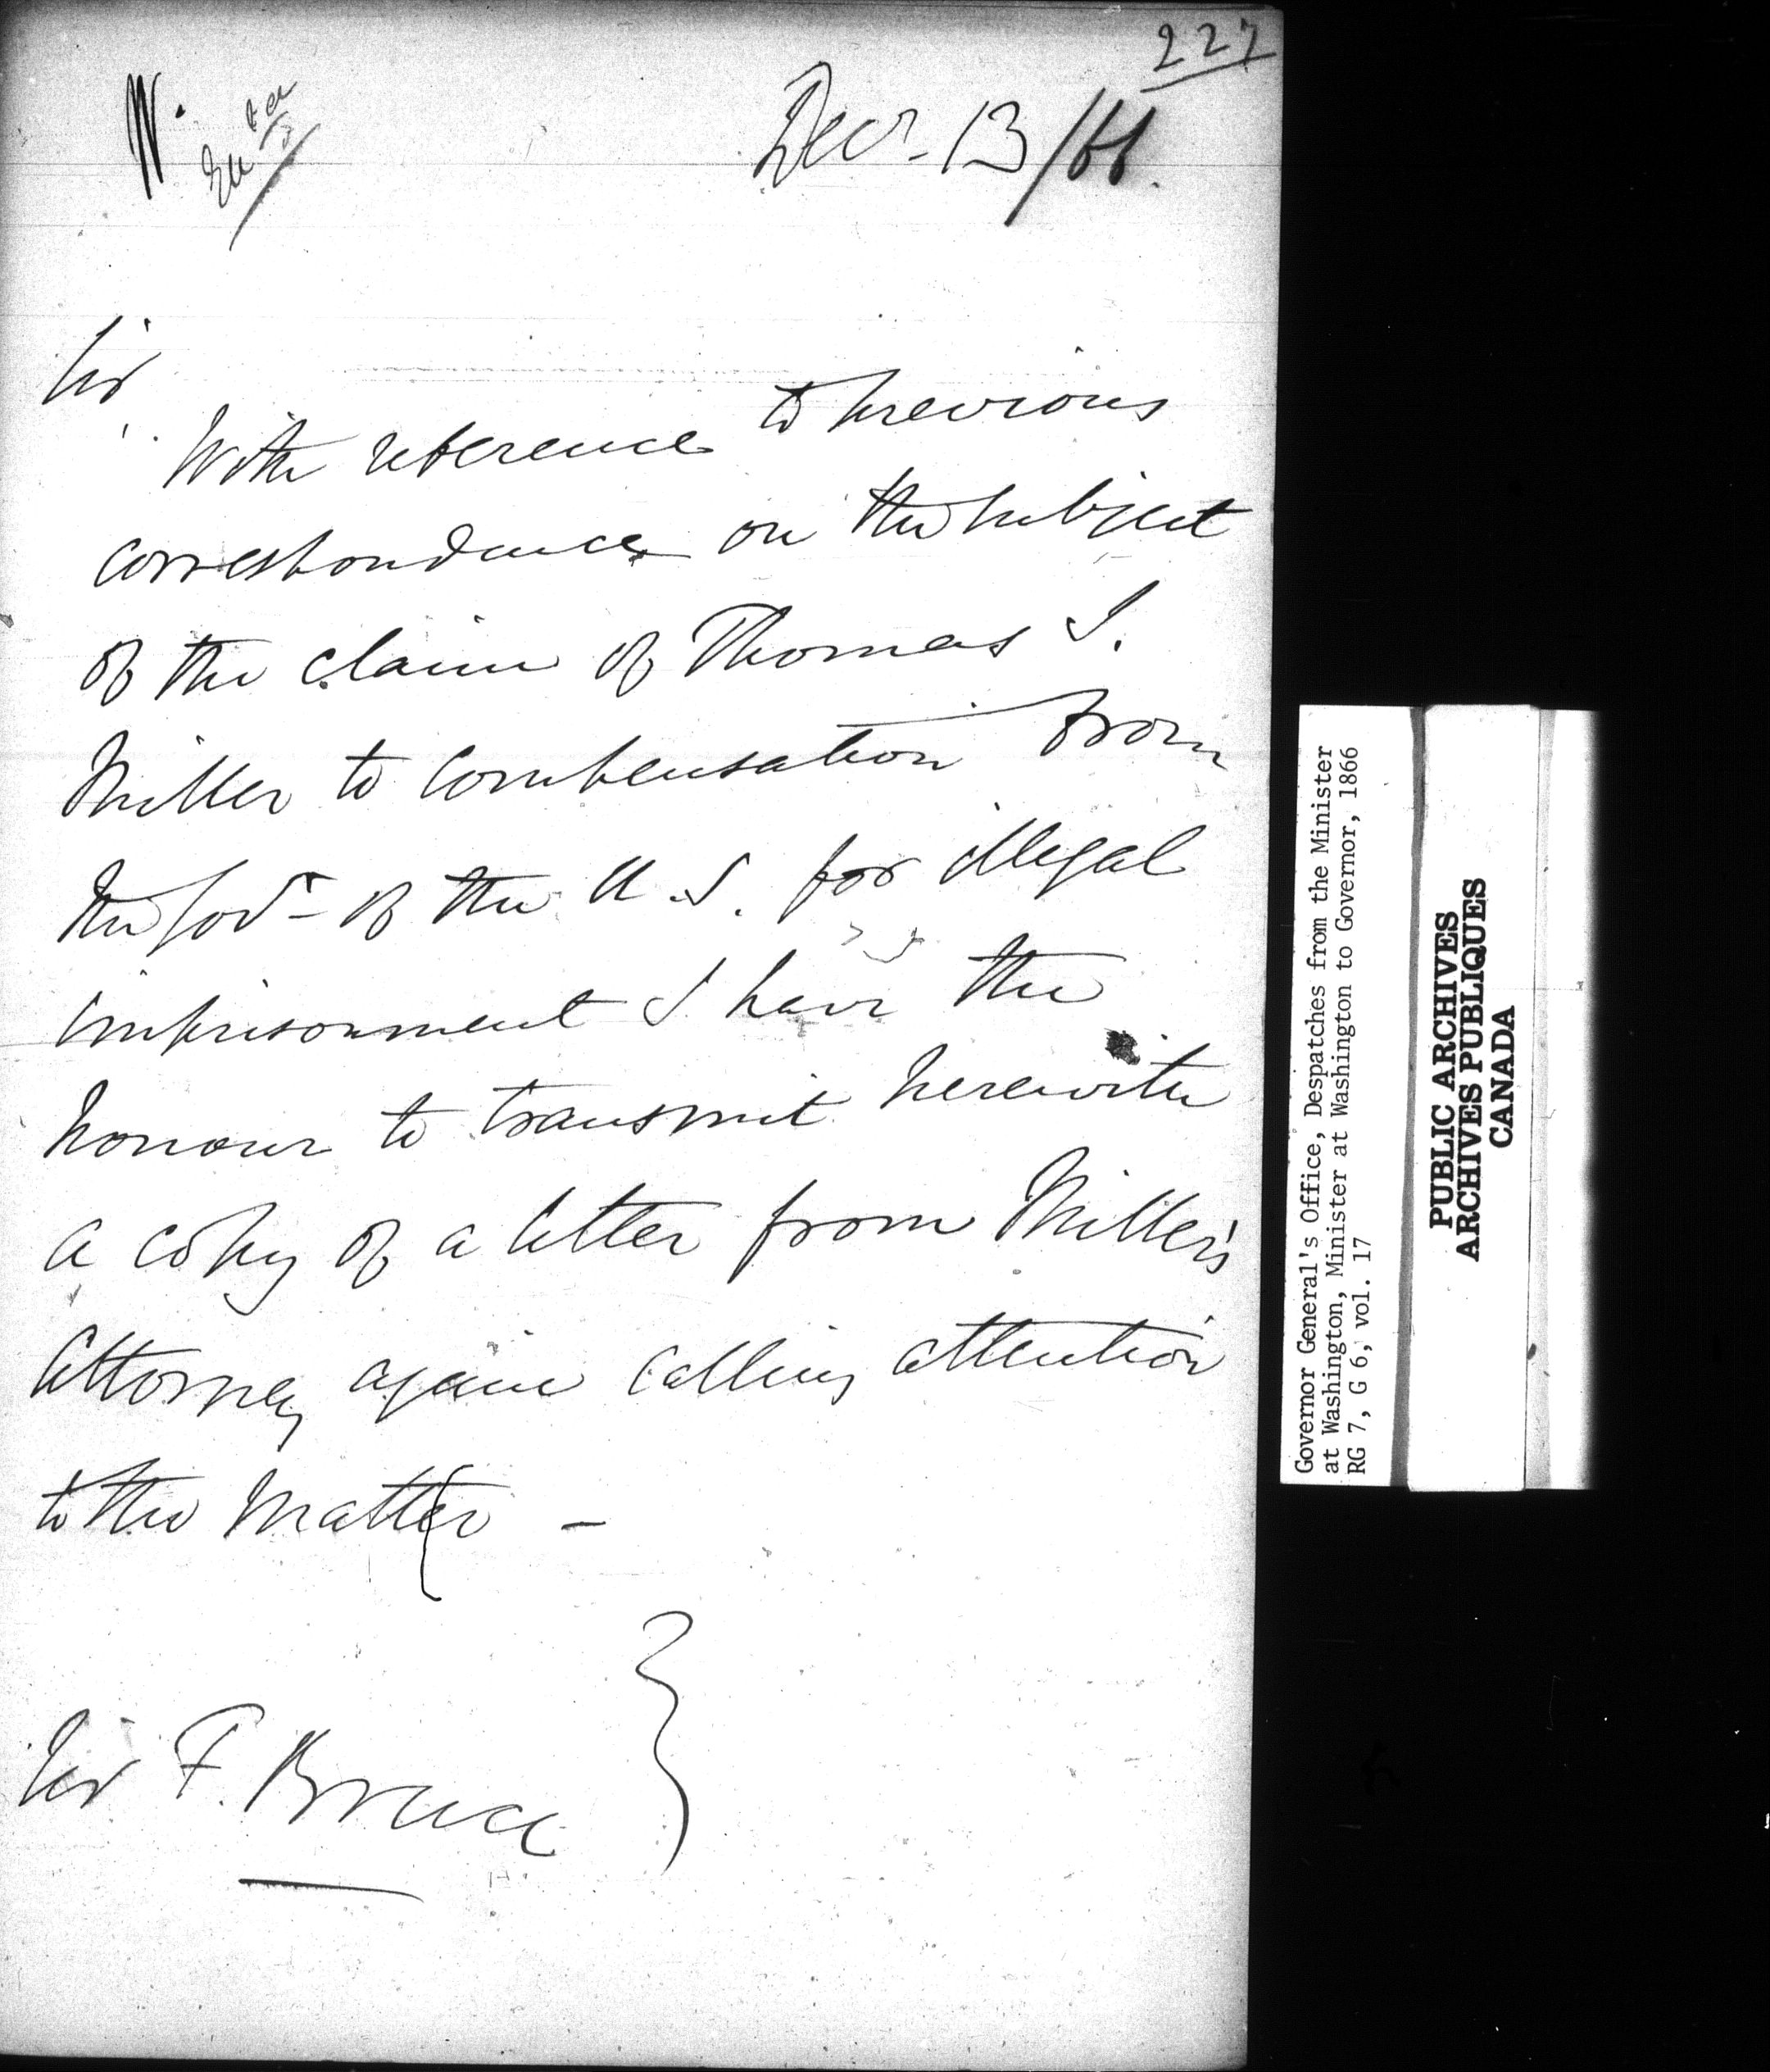 227
W.
Decr. 13/66.
Sir
With reference to previous
correspondence on the subject
of the claim of Thomas S.
Miller to compensation from
the Govt. of the U.S. for illegal
imprisonment I have the
honour to transmit herewith
a copy of a letter from Miller's
Attorney again calling attention
to the matter –
Sir F. Bruce
Governor General's Office, Despatches from the Minister
at Washington, Minister at Washington to Governor, 1866
RG 7, G 6, vol. 17
PUBLIC ARCHIVES
ARCHIVES PUBLIQUES
CANADA